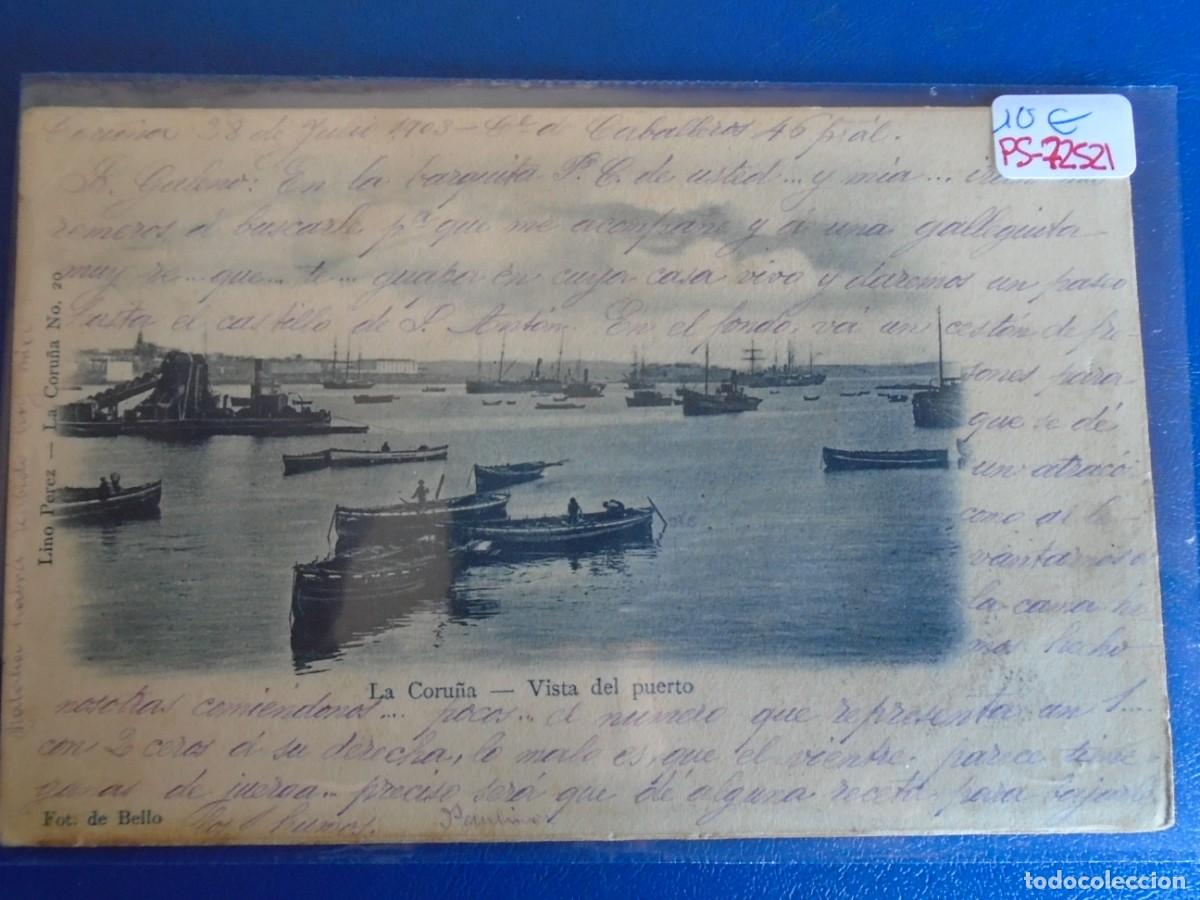 10 €
PS-72521
Coruña 28 de Julio 1903 - de Caballeros 46 pral.
Galeno: En la barquita P. C. de usted... y mía...
remeros á buscarle pª que me acompañe y á una galleguita
muy re... que... te... guapa en cuya casa vivo y daremos un paseo
hasta el castillo de S. Antón. En el fondo vá un cestón de fre-
sones para
que se dé
un atracó
como al le-
vantarnos d
la cama he
mos hecho
nosotras comiéndonos... pocos... el numero que representa un 1...
con 2 ceros á su derecha, lo malo es, que el vientre parece tiene
ganas de juerga... preciso será que dé alguna receta para bajar
los humos. Paulino
Lino Perez — La Coruña No. 20
La Coruña — Vista del puerto
Fot. de Bello
todocoleccion